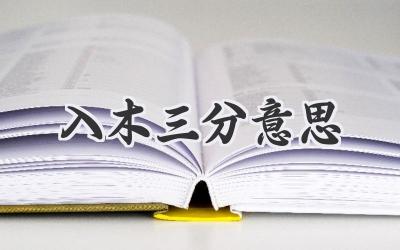 入木三分意思